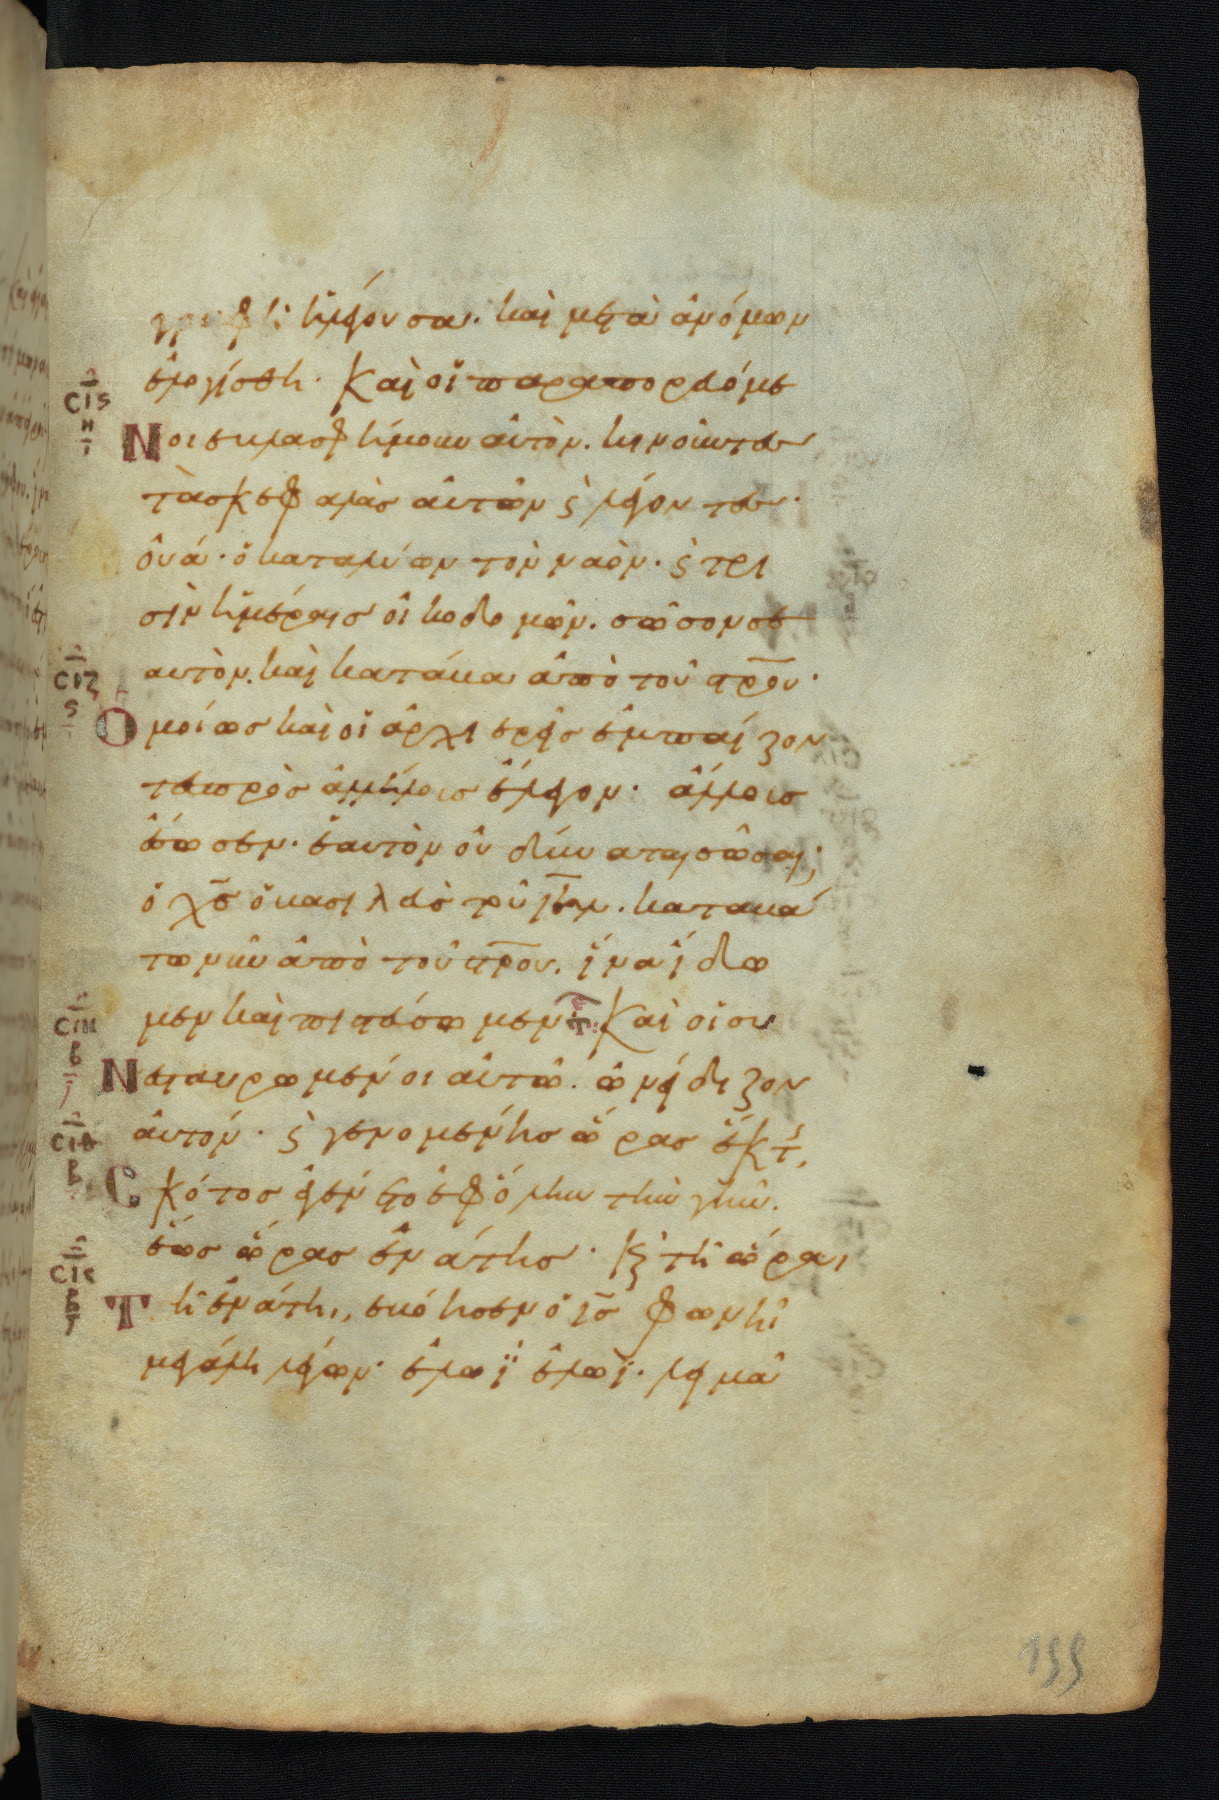 γραφὴ ἡ λέγουσα· καὶ μετὰ ἀνόμων
ἐλογίσθη· Καὶ οἱ παραπορευόμε
Νοι ἐβλασφήμουν αὐτὸν. κινοῦντες
τὰς κεφαλὰς αὐτῶν ϗ λέγοντες·
οὐά· ὁ καταλύων τὸν ναὸν· ϗ τρι
σὶν ἡμέραις οἰκοδομῶν. σῶσον σε
αυτὸν. καὶ κατάβα ἀπὸ τοῦ σ̅ρ̅ο̅υ·
Ομοίως καὶ οἱ ἀρχιερεῖς ἐμπαίζον
τες πρὸς ἀλλήλοις ἔλεγον· ἄλλοις
ἔσωσεν· ἑαυτὸν οὐ δύναται σῶσαι;
ὁ χ̅ς̅ ὁ βασιλεὺς τοῦ ι̅η̅λ̅. καταβά
τω νῦν ἀπὸ τοῦ σ̅ρ̅ο̅υ. ἵνα ἴδω
μεν καὶ πιστεύσωμεν Καὶ οἱ συ
Νσταυρωμένοι αὐτῶ. ὠνείδιζον
αὐτόν· ϗ γενομένης ὥρας ἕκτ,
Σκότος ἐγένετο ἐφ' ὅλην τὴν γῆν.
ἕως ὥρας ἐνάτης· Κ̀ τῆ ὥραι
Τῆ ἐνάτη,, εβόησεν ὁ ι̅ς̅ φωνῆ
μεγάλη λέγων· ἐλωῒ ἐλωῒ· λεμὰ
ϹΙϚ
Η
ϹΙΖ
Ϛ
ϹΙΗ
Β
ϹΙΘ
Β
Β
155